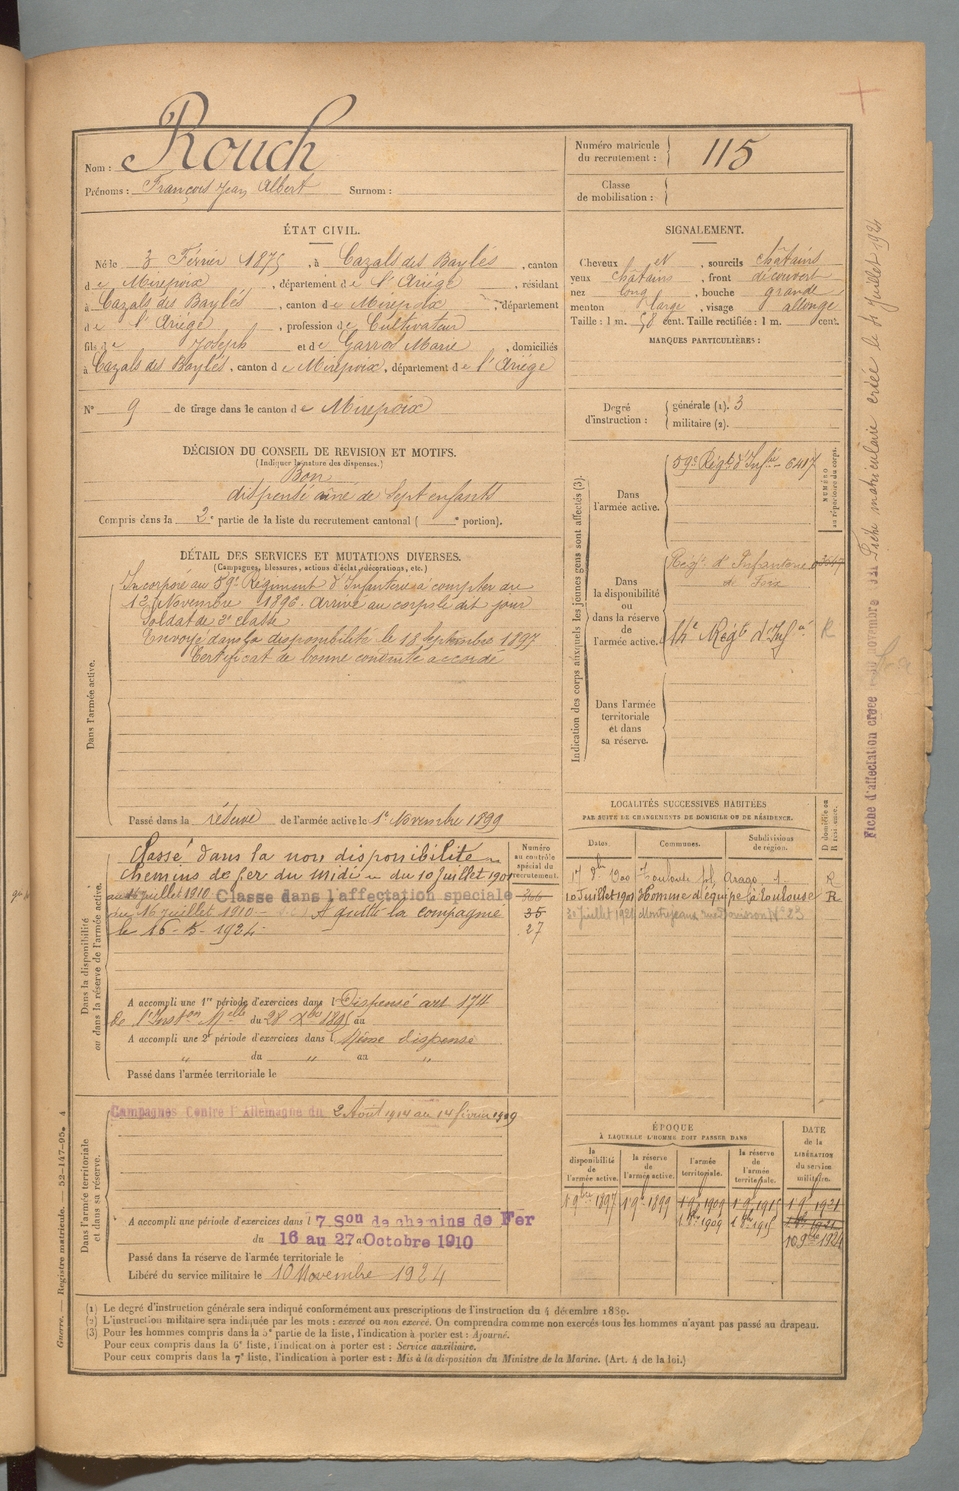 Nom : Rouch
Prénoms : François Jean Albert Surnom :
Numéro matricule du recrutement : 115
Classe de mobilisation :
ÉTAT CIVIL.
Né le 3 Février 1875, à Cazals des Baylés, canton
de Mirepoix, département de l'Ariège, résidant
à Cazals des Baylés, canton de Mirepoix, département
de l'Ariège, profession de Cultivateur
fils de Joseph et de Garros Marie, domiciliés
à Cazals des Baylés, canton de Mirepoix, département de l'Ariège
N° 9 de tirage dans le canton de Mirepoix
SIGNALEMENT.
Cheveux, sourcils châtains
yeux châtains, front découvert
nez long, bouche grande
menton large, visage allongé
Taille : 1 m. 58 cent. Taille rectifiée : 1 m. cent.
MARQUES PARTICULIÈRES :
Degré d'instruction : générale (1). 3
militaire (2).
DÉCISION DU CONSEIL DE REVISION ET MOTIFS.
(Indiquer la nature des dispenses.)
Bon
dispensé aîné de sept enfants
Compris dans la 2e partie de la liste du recrutement cantonal ( e portion).
DÉTAIL DES SERVICES ET MUTATIONS DIVERSES.
(Campagnes, blessures, actions d'éclat, décorations, etc.)
Dans l'armée active.
Incorporé au 59e Régiment d'Infanterie à compter du
Novembre 1896. Arrivé au corps le dit jour
Soldat de 2e classe
Envoyé dans la disponibilité le 18 Septembre 1897
Certificat de bonne conduite accordé
Passé dans la réserve de l'armée active le 1er Novembre 1899
Indication des corps auxquels les jeunes gens sont affectés (3).
NUMÉRO au répertoire du corps.
Dans l'armée active.
59e Régt d'Infrie 6417
Dans la disponibilité ou dans la réserve de l'armée active.
Régt d'Infanterie de Foix
14e Régt d'Infie R
Dans l'armée territoriale et dans sa réserve.
Fiche matriculaire créée le Juillet 1921
Fiche d'affectation créée novembre
Dans la disponibilité ou dans la réserve de l'armée active.
Numéro au contrôle spécial du recrutement.
Classé dans la non disponibilité
chemins de fer du Midi du 10 Juillet 1901
au 16 juillet 1910 Classé dans l'affectation spéciale 366
du 16 juillet 1910 A quitté la compagnie 35
le 16-5-1924 27
A accompli une 1re période d'exercices dans l Dispensé art 174
de l'Inston Melle du 28 Xbre 1895 au
A accompli une 2e période d'exercices dans l Même dispense
du " au "
Passé dans l'armée territoriale le
LOCALITÉS SUCCESSIVES HABITÉES
PAR SUITE DE CHANGEMENTS DE DOMICILE OU DE RÉSIDENCE.
Dates. Communes. Subdivisions de région. D domicile ou R résidence.
1900 Toulouse pl. Arago 1 R
10 Juillet 1901 Homme d'équipe à Toulouse R
Juillet 1921 23
Dans l'armée territoriale et dans sa réserve.
Campagnes Contre l'Allemagne du 2 Août 1914 au 14 février 1919
A accompli une période d'exercices dans l 7 Son de chemins de Fer
du 16 au 27 Octobre 1910
Passé dans la réserve de l'armée territoriale le
Libéré du service militaire le 10 Novembre 1924
ÉPOQUE
À LAQUELLE L'HOMME DOIT PASSER DANS
la disponibilité de l'armée active. la réserve de l'armée active. l'armée territoriale. la réserve de l'armée territoriale. DATE de la LIBÉRATION du service militaire.
1 9bre 1897 1 9bre 1899 1 9 1909 1 9 1915 1 9 1921
1 9bre 1909 1 9bre 1915
10 9bre 1924
(1) Le degré d'instruction générale sera indiqué conformément aux prescriptions de l'instruction du 4 décembre 1889.
(2) L'instruction militaire sera indiquée par les mots : exercé ou non exercé. On comprendra comme non exercés tous les hommes n'ayant pas passé au drapeau.
(3) Pour les hommes compris dans la 5e partie de la liste, l'indication à porter est : Ajourné.
Pour ceux compris dans la 6e liste, l'indication à porter est : Service auxiliaire.
Pour ceux compris dans la 7e liste, l'indication à porter est : Mis à la disposition du Ministre de la Marine. (Art. 4 de la loi.)
Guerre. — Registre matricule. — 52-147-95. 4